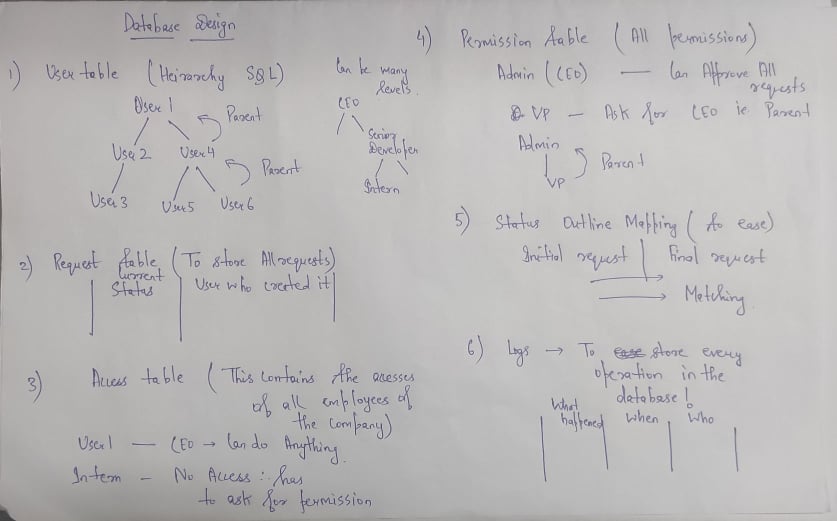 Database Design
1) User table (Heirarchy SQL)
User 1
Parent
User 2 User 4
Parent
User 3 User 5 User 6
Can be many
levels.
CEO
Senior
Developer
Intern
2) Request table (To store All requests)
Current
Status User who created it
3) Access table (This contains the acesses
of all employees of
the company)
User 1 — CEO → Can do Anything.
Intern - No Access ∴ has
to ask for permission
4) Permission table (All permissions)
Admin (CEO) — Can Approve All
requests
VP — Ask for CEO ie Parent
Admin
Parent
VP
5) Status Outline Mapping (to ease)
Initial request Final request
→ Matching
6) Logs → To store every
operation in the
database!
What
happened when Who